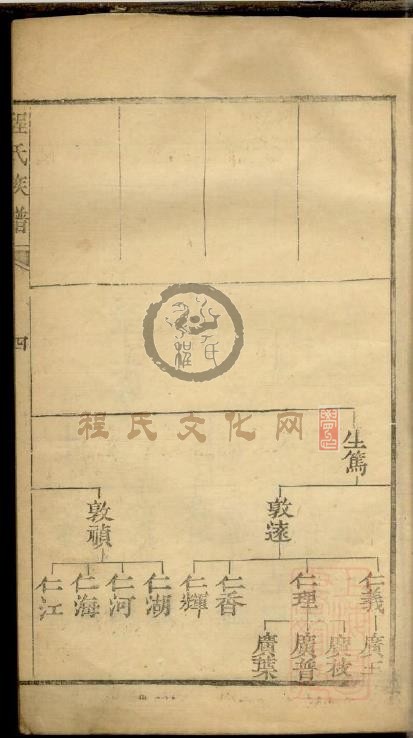 程氏族譜
四
程氏文化网
程氏
生篤
敦遠
敦禎
仁義
仁理
仁香
仁輝
仁湖
仁河
仁海
仁江
廣枝
廣普
廣葉